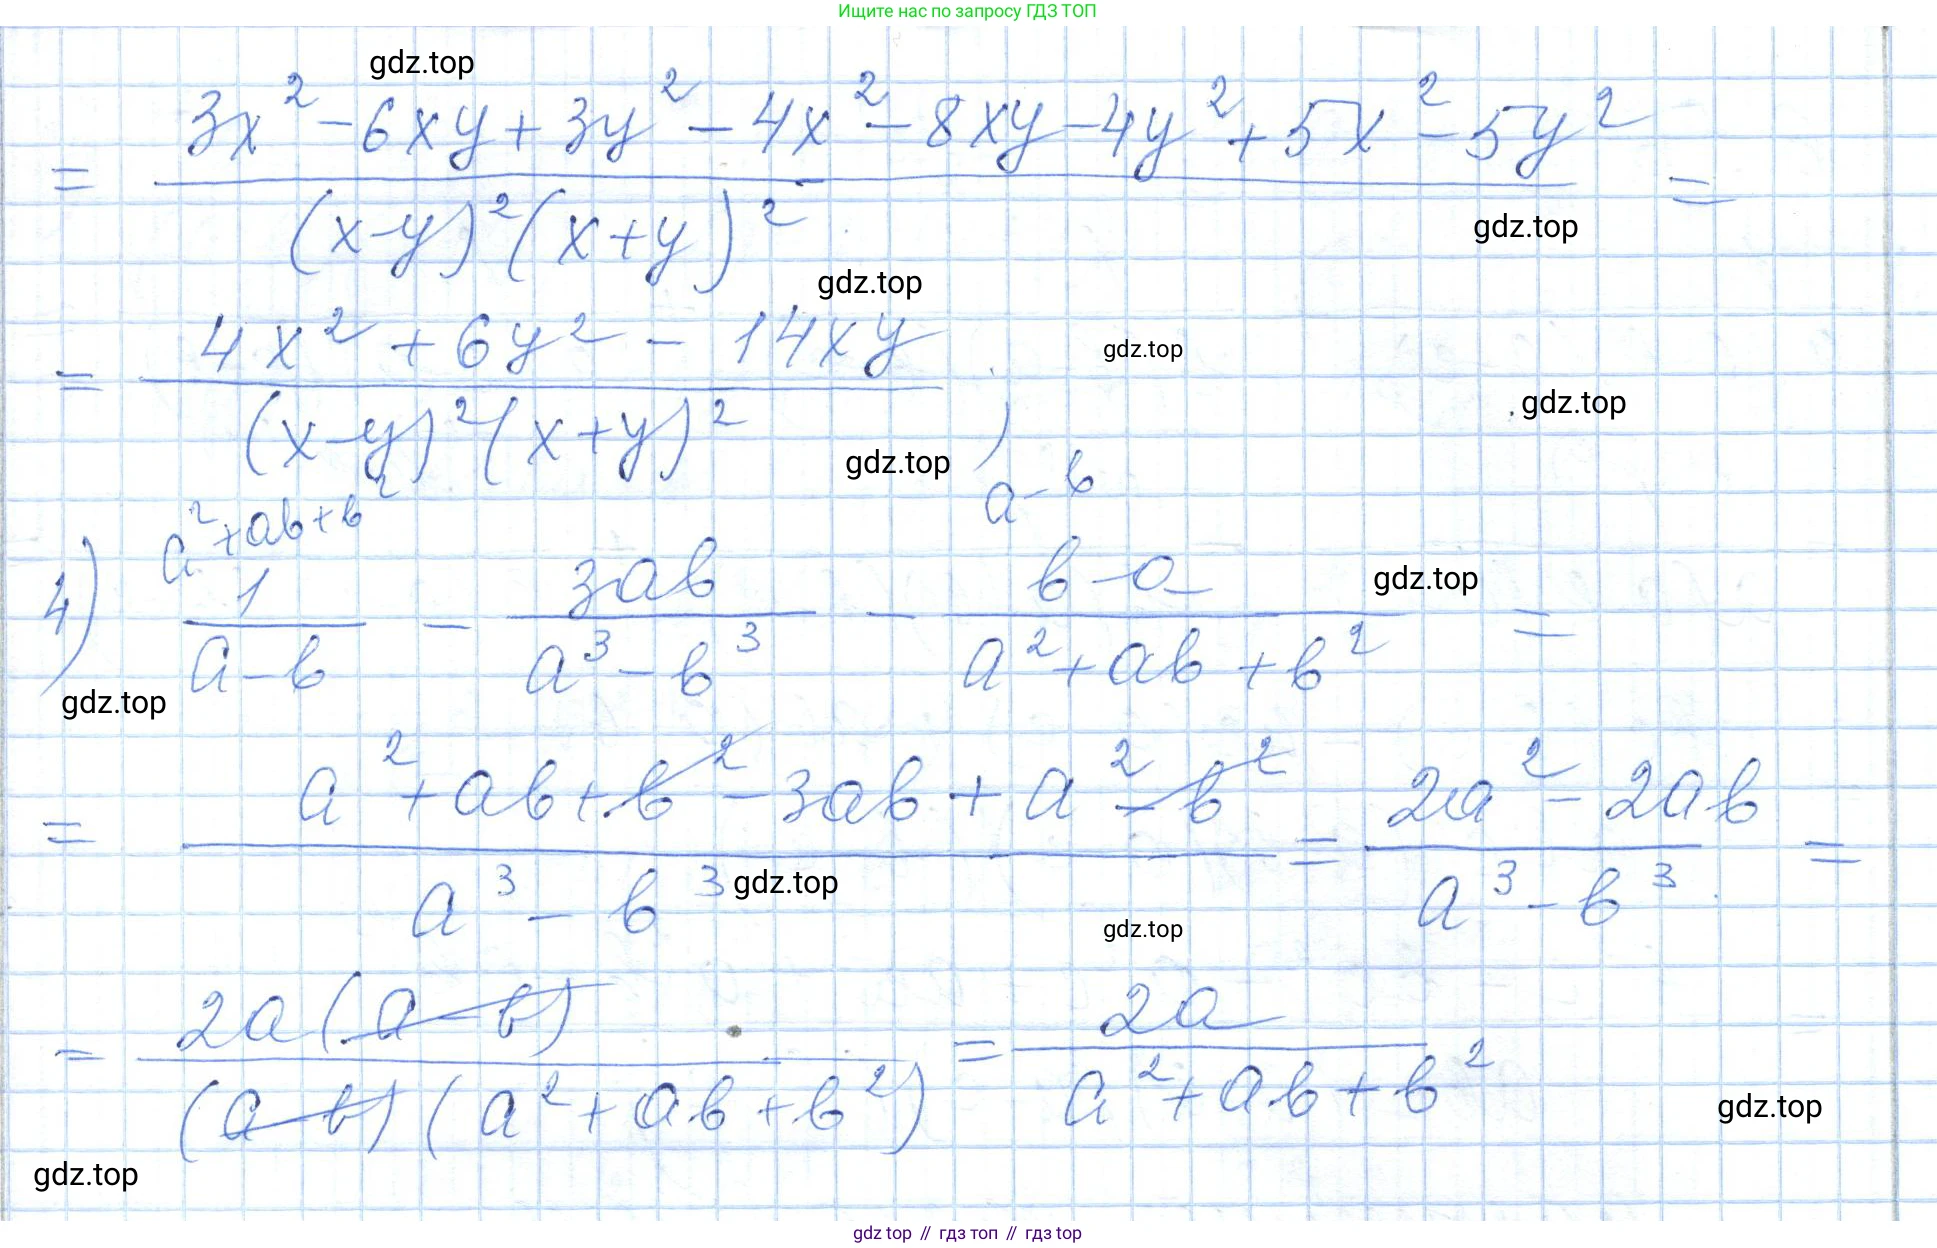 Ищите нас по запросу ГДЗ ТОП
gdz.top
= (3x² - 6xy + 3y² - 4x² - 8xy - 4y² + 5x² - 5y²) / ((x-y)²(x+y)²) =
gdz.top
gdz.top
= (4x² + 6y² - 14xy) / ((x-y)²(x+y)²) ;
gdz.top
gdz.top
gdz.top
a²+ab+b² a-b
4) 1/(a-b) - 3ab/(a³-b³) - (b-a)/(a²+ab+b²) =
gdz.top
gdz.top
= (a² + ab + b² - 3ab + a² - b²) / (a³ - b³) = (2a² - 2ab) / (a³ - b³) =
gdz.top
gdz.top
= 2a(a-b) / ((a-b)(a²+ab+b²)) = 2a / (a²+ab+b²)
gdz.top
gdz.top
gdz top // гдз топ // гдз top